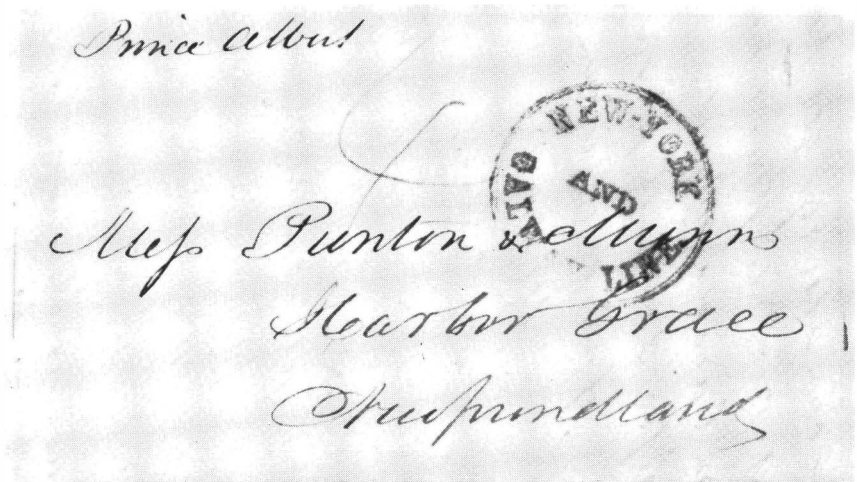 Prince Albert
NEW-YORK
AND
GALWAY
LINE.
Mess Punton & Munn
Harbor Grace
Newfoundland